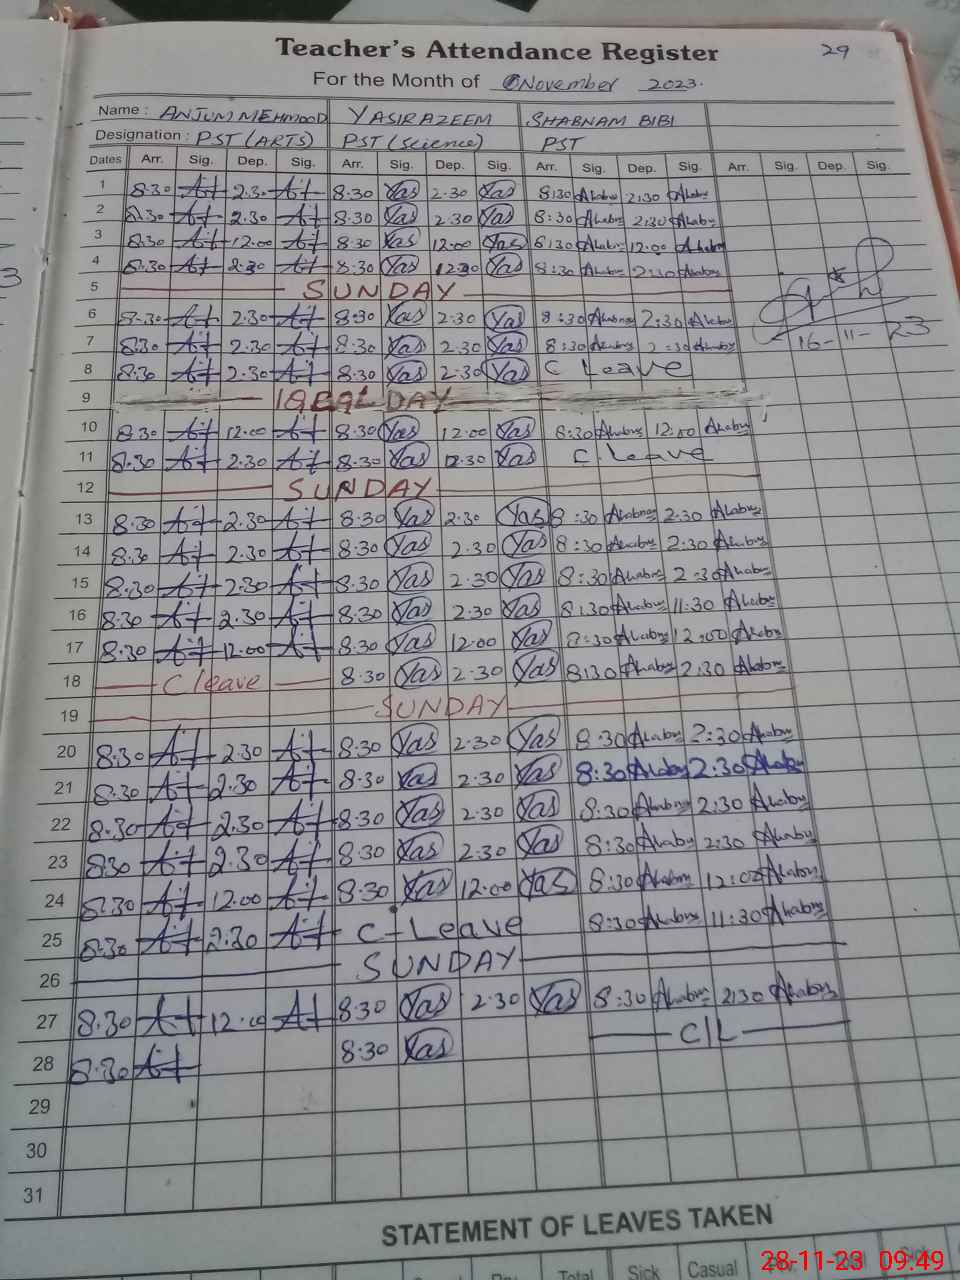 29
Teacher's Attendance Register
For the Month of November 2023.
Name : ANJUM MEHMOOD YASIR AZEEM SHABNAM BIBI
Designation : PST (ARTS) PST (Science) PST
Dates Arr. Sig. Dep. Sig. Arr. Sig. Dep. Sig. Arr. Sig. Dep. Sig. Arr. Sig. Dep. Sig.
1 8.30 2.30 8.30 Yas 2.30 Yas 8:30 2:30
2 8.30 2.30 8.30 Yas 2.30 Yas 8:30 2:30
3 8.30 12.00 8.30 Yas 12.00 Yas 8:30 12:00
4 8.30 2.30 8.30 Yas 12.30 Yas 8:30
5 SUNDAY
6 8.30 2.30 8.30 Yas 2.30 Yas 8:30 2:30
7 8.30 2.30 8.30 Yas 2.30 Yas 8:30 2:30
16-11-23
8 8.30 2.30 8.30 Yas 2.30 Yas C Leave
9 DAY
10 8.30 12.00 8.30 Yas 12.00 Yas 8:30 12:00
11 8.30 2.30 8.30 Yas 12.30 Yas C. Leave
12 SUNDAY
13 8.30 2.30 8.30 Yas 2.30 Yas 8:30 2:30
14 8.30 2.30 8.30 Yas 2.30 Yas 8:30 2:30
15 8.30 2.30 8.30 Yas 2.30 Yas 8:30 2:30
16 8.30 2.30 8.30 Yas 2.30 Yas 8:30 11:30
17 8.30 12.00 8.30 Yas 12.00 Yas 8:30 12:00
18 C leave 8.30 Yas 2.30 Yas 8:30 2:30
19 SUNDAY
20 8.30 2.30 8.30 Yas 2.30 Yas 8:30 2:30
21 8.30 2.30 8.30 Yas 2.30 Yas 8:30 2:30
22 8.30 2.30 8.30 Yas 2.30 Yas 8:30 2:30
23 8.30 2.30 8.30 Yas 2.30 Yas 8:30 2:30
24 8.30 12.00 8.30 Yas 12.00 Yas 8:30 12:00
25 8.30 2.30 C-Leave 8:30 11:30
26 SUNDAY
27 8.30 12.00 8.30 Yas 2.30 Yas 8:30 2:30
28 8.30 8.30 Yas C/L
29
30
31
STATEMENT OF LEAVES TAKEN
Total Sick Casual Total Sick
28-11-23 09:49